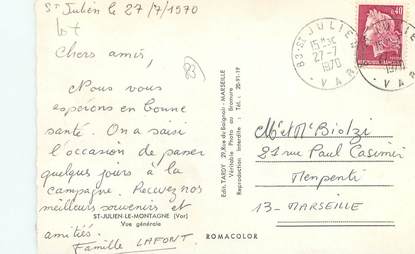 St Julien le 27/7/1970
Lot
Chers amis,
83
Nous vous
espérons en bonne
santé. On a saisi
l'occasion de passer
quelques jours à la
campagne. Recevez nos
meilleurs souvenirs et
ST-JULIEN-LE-MONTAGNE (Var)
Vue générale
amitiés.
Famille LAFONT.
Edit. TARDY, 29, Rue de Bruys - MARSEILLE
Véritable Photo au Bromure
Reproduction Interdite - Tél. 20-91-19
ROMACOLOR
83 - ST JULIEN
15H
27-7
1970
VAR
0,40
REPUBLIQUE FRANCAISE
Mr et Me Biolzi
21 rue Paul Casimir
Menpenti
13 - MARSEILLE